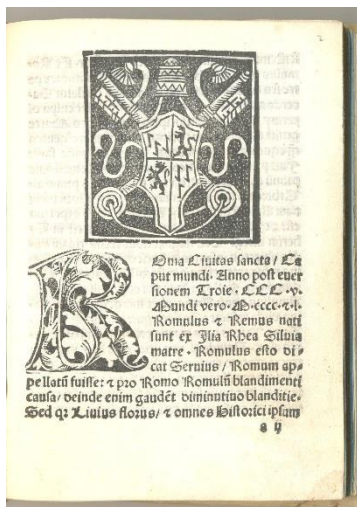 2
ROma Ciuitas sancta / Ca
put mundi. Anno post euer
sionem Troie. CCC. v.
Mundi vero. M. cccc. ⁊. l.
Romulus ⁊ Remus nati
sunt ex Ilia Rhea Siluia
matre. Romulus esto di⸗
cat Seruius / Romum ap⸗
pellatũ fuisse: ⁊ pro Romo Romulũ blandimenti
causa / deinde enim gaudẽt diminutiuo blanditie.
Sed qꝛ Liuius florus / ⁊ omnes Historici ipsum
a ij